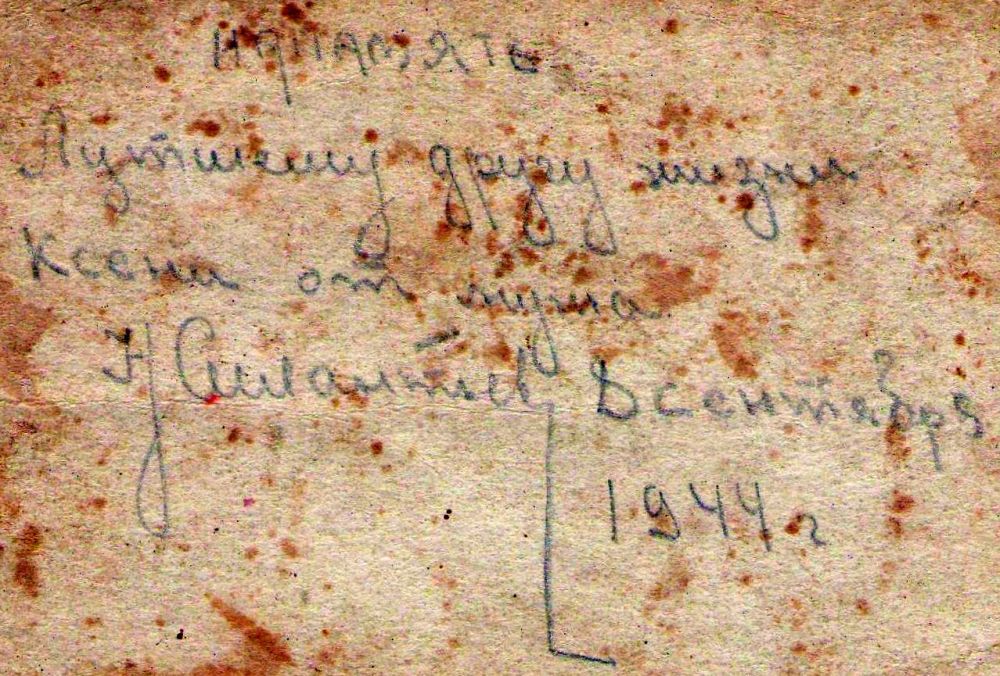 НАПАМЯТЬ
Лутшему другу жизни
Ксени от мужа
8 сентября
1944 г